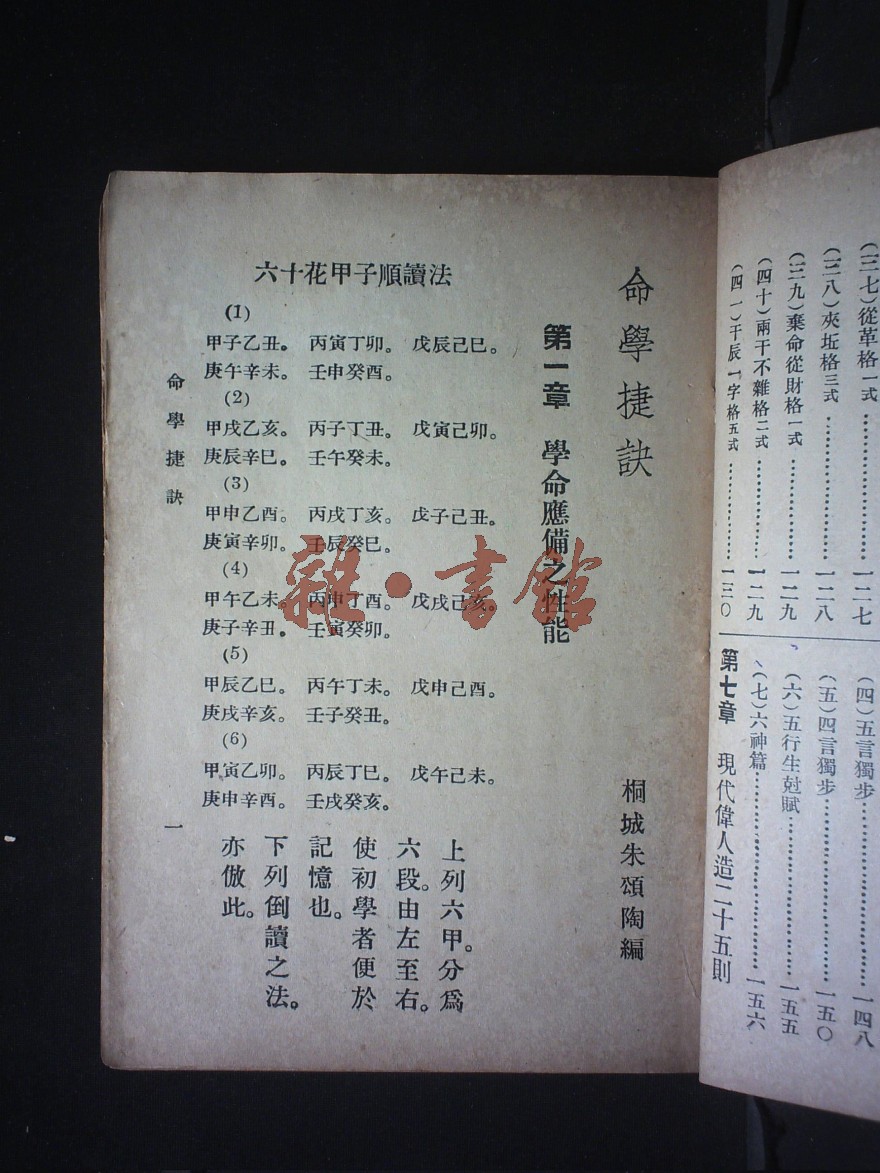 (三七)從革格一式……………一二七
(三八)夾坵格三式……………一二八
(三九)棄命從財格一式……………一二九
(四十)兩干不雜格二式……………一二九
(四一)干辰一字格五式……………一三〇
(四)五言獨步……………一四八
(五)四言獨步……………一五〇
(六)五行生尅賦……………一五五
(七)六神篇……………一五六
第七章 現代偉人造二十五則
命學捷訣
桐城朱頌陶編
第一章 學命應備之性能
六十花甲子順讀法
(1)
甲子乙丑。 丙寅丁卯。 戊辰己巳。
庚午辛未。 壬申癸酉。
(2)
甲戌乙亥。 丙子丁丑。 戊寅己卯。
庚辰辛巳。 壬午癸未。
(3)
甲申乙酉。 丙戌丁亥。 戊子己丑。
庚寅辛卯。 壬辰癸巳。
(4)
甲午乙未。 丙申丁酉。 戊戌己亥。
庚子辛丑。 壬寅癸卯。
(5)
甲辰乙巳。 丙午丁未。 戊申己酉。
庚戌辛亥。 壬子癸丑。
(6)
甲寅乙卯。 丙辰丁巳。 戊午己未。
庚申辛酉。 壬戌癸亥。
上列六甲。分爲
六段。由左至右。
使初學者便於
記憶也。
下列倒讀之法。
亦倣此。
命學捷訣
一
雜·書館